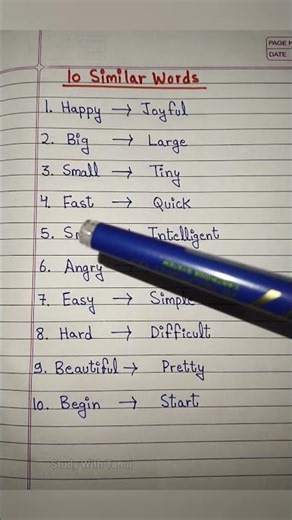 PAGE
DATE
10 Similar Words
1. Happy → Joyful
2. Big → Large
3. Small → Tiny
4. Fast → Quick
5. Intelligent
6. Angry →
7. Easy → Simple
8. Hard → Difficult
9. Beautiful → Pretty
10. Begin → Start
Study With